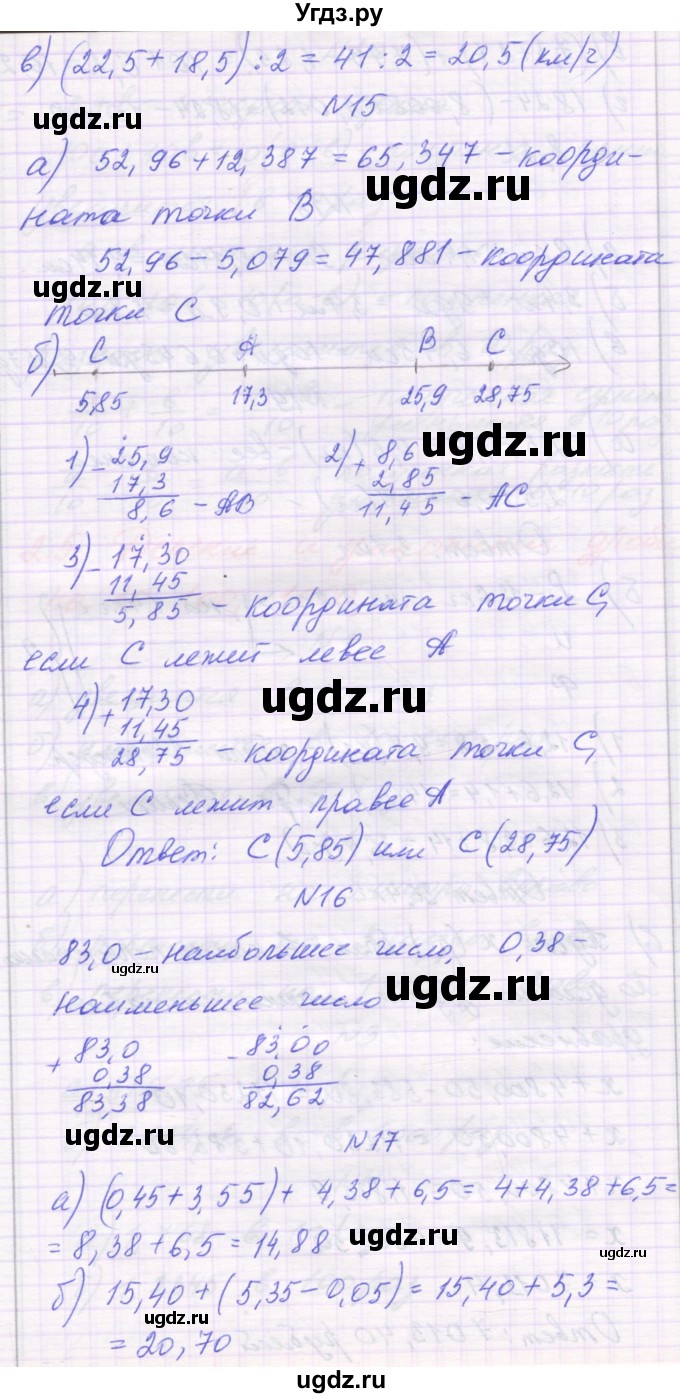 Угдз.ру
в) (22,5 + 18,5) : 2 = 41 : 2 = 20,5 (км/ч)
ugdz.ru
N15
а) 52,96 + 12,387 = 65,347 – коорди-
ugdz.ru
ната точки В
52,96 – 5,079 = 47,881 – координата
ugdz.ru
точки С
б) С А В С
5,85 17,3 25,9 28,75
1) – 25,9 2) + 8,6
ugdz.ru
17,3 2,85
8,6 – АВ 11,45 – АС
3) – 17,30
11,45
5,85 – координата точки С,
если С лежит левее А
4) + 17,30
ugdz.ru
11,45
28,75 – координата точки С,
если С лежит правее А
Ответ: С (5,85) или С (28,75)
N16
83,0 – наибольшее число, 0,38 –
ugdz.ru
наименьшее число
ugdz.ru
+ 83,0 – 83,00
0,38 0,38
83,38 82,62
ugdz.ru
N17
а) (0,45 + 3,55) + 4,38 + 6,5 = 4 + 4,38 + 6,5 =
= 8,38 + 6,5 = 14,88
ugdz.ru
ugdz.ru
б) 15,40 + (5,35 – 0,05) = 15,40 + 5,3 =
= 20,70
ugdz.ru
ugdz.ru